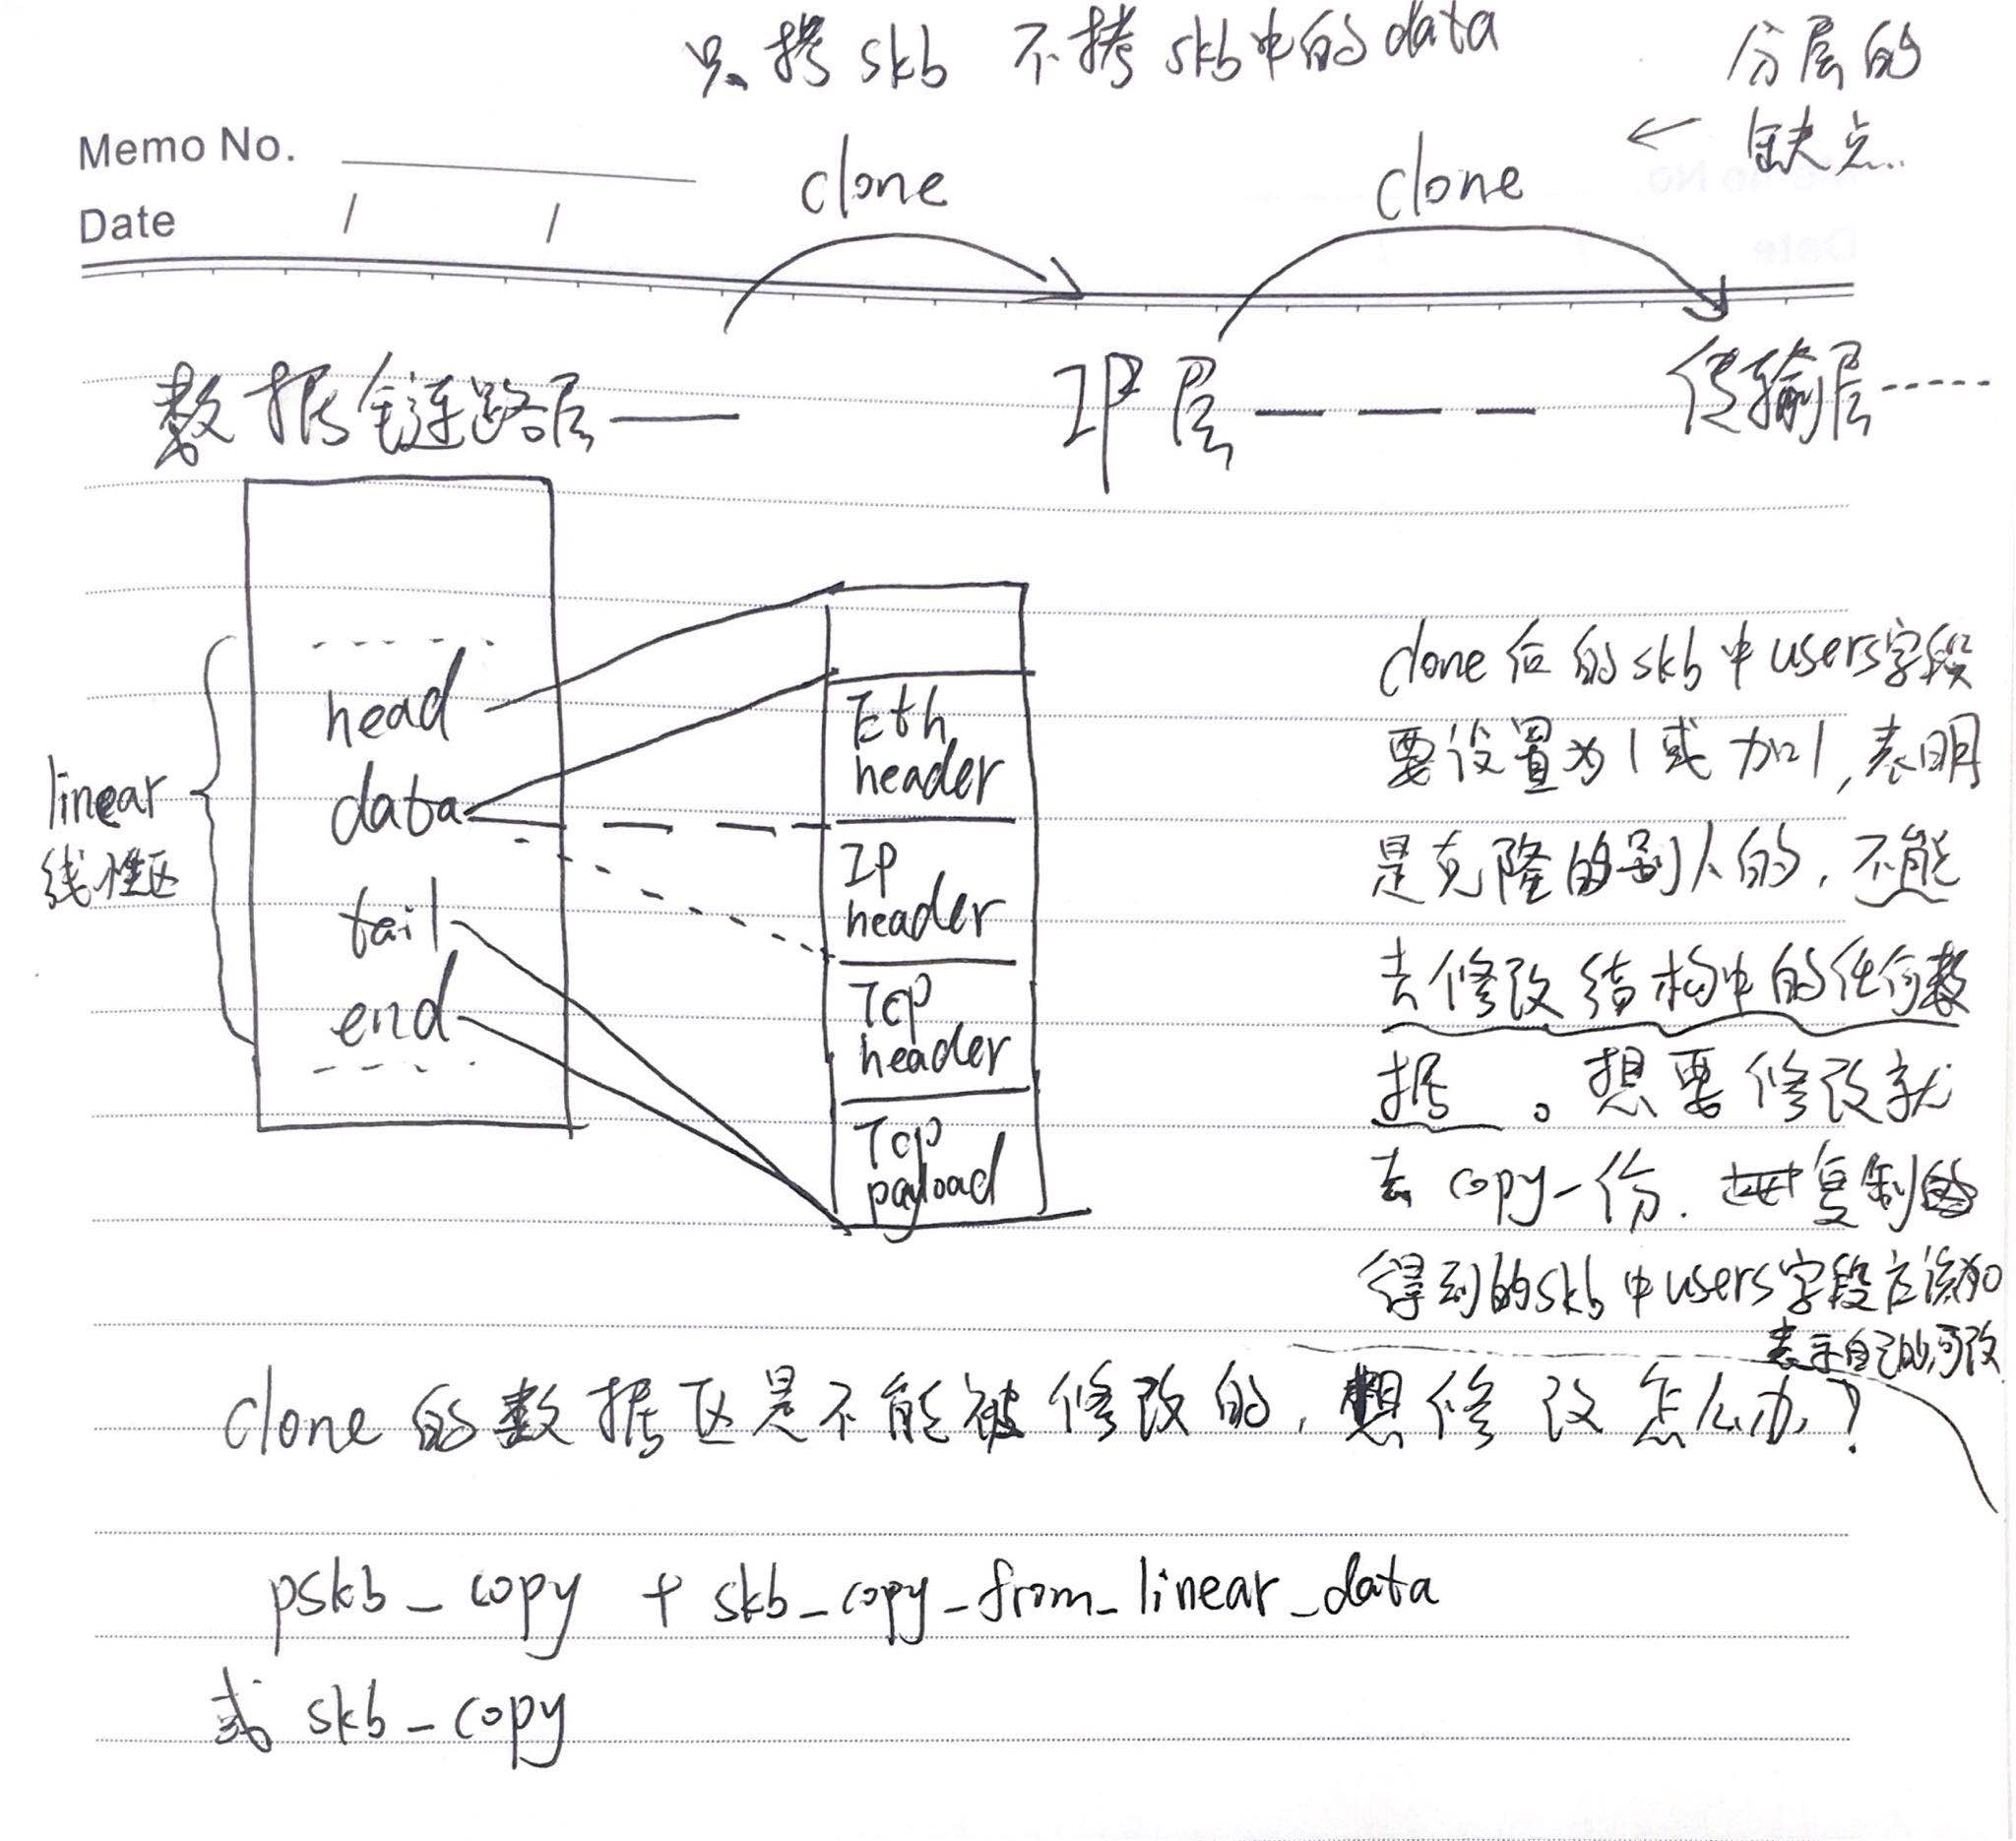 只拷skb 不拷skb中的data
分层的
缺点
←
Memo No.
Date / /
clone
clone
数据链路层——
IP层— — — —
传输层-----
linear
线性区
head
data
tail
end
Eth
header
IP
header
Tcp
header
Tcp
payload
clone后的skb中users字段
要设置为1或加1,表明
是克隆的别人的,不能
去修改结构中的任何数
据。想要修改就
去copy一份.复制
得到的skb中users字段应该为0
表示自己的,可改
clone的数据区是不能被修改的,想修改怎么办?
pskb_copy + skb_copy_from_linear_data
或 skb_copy